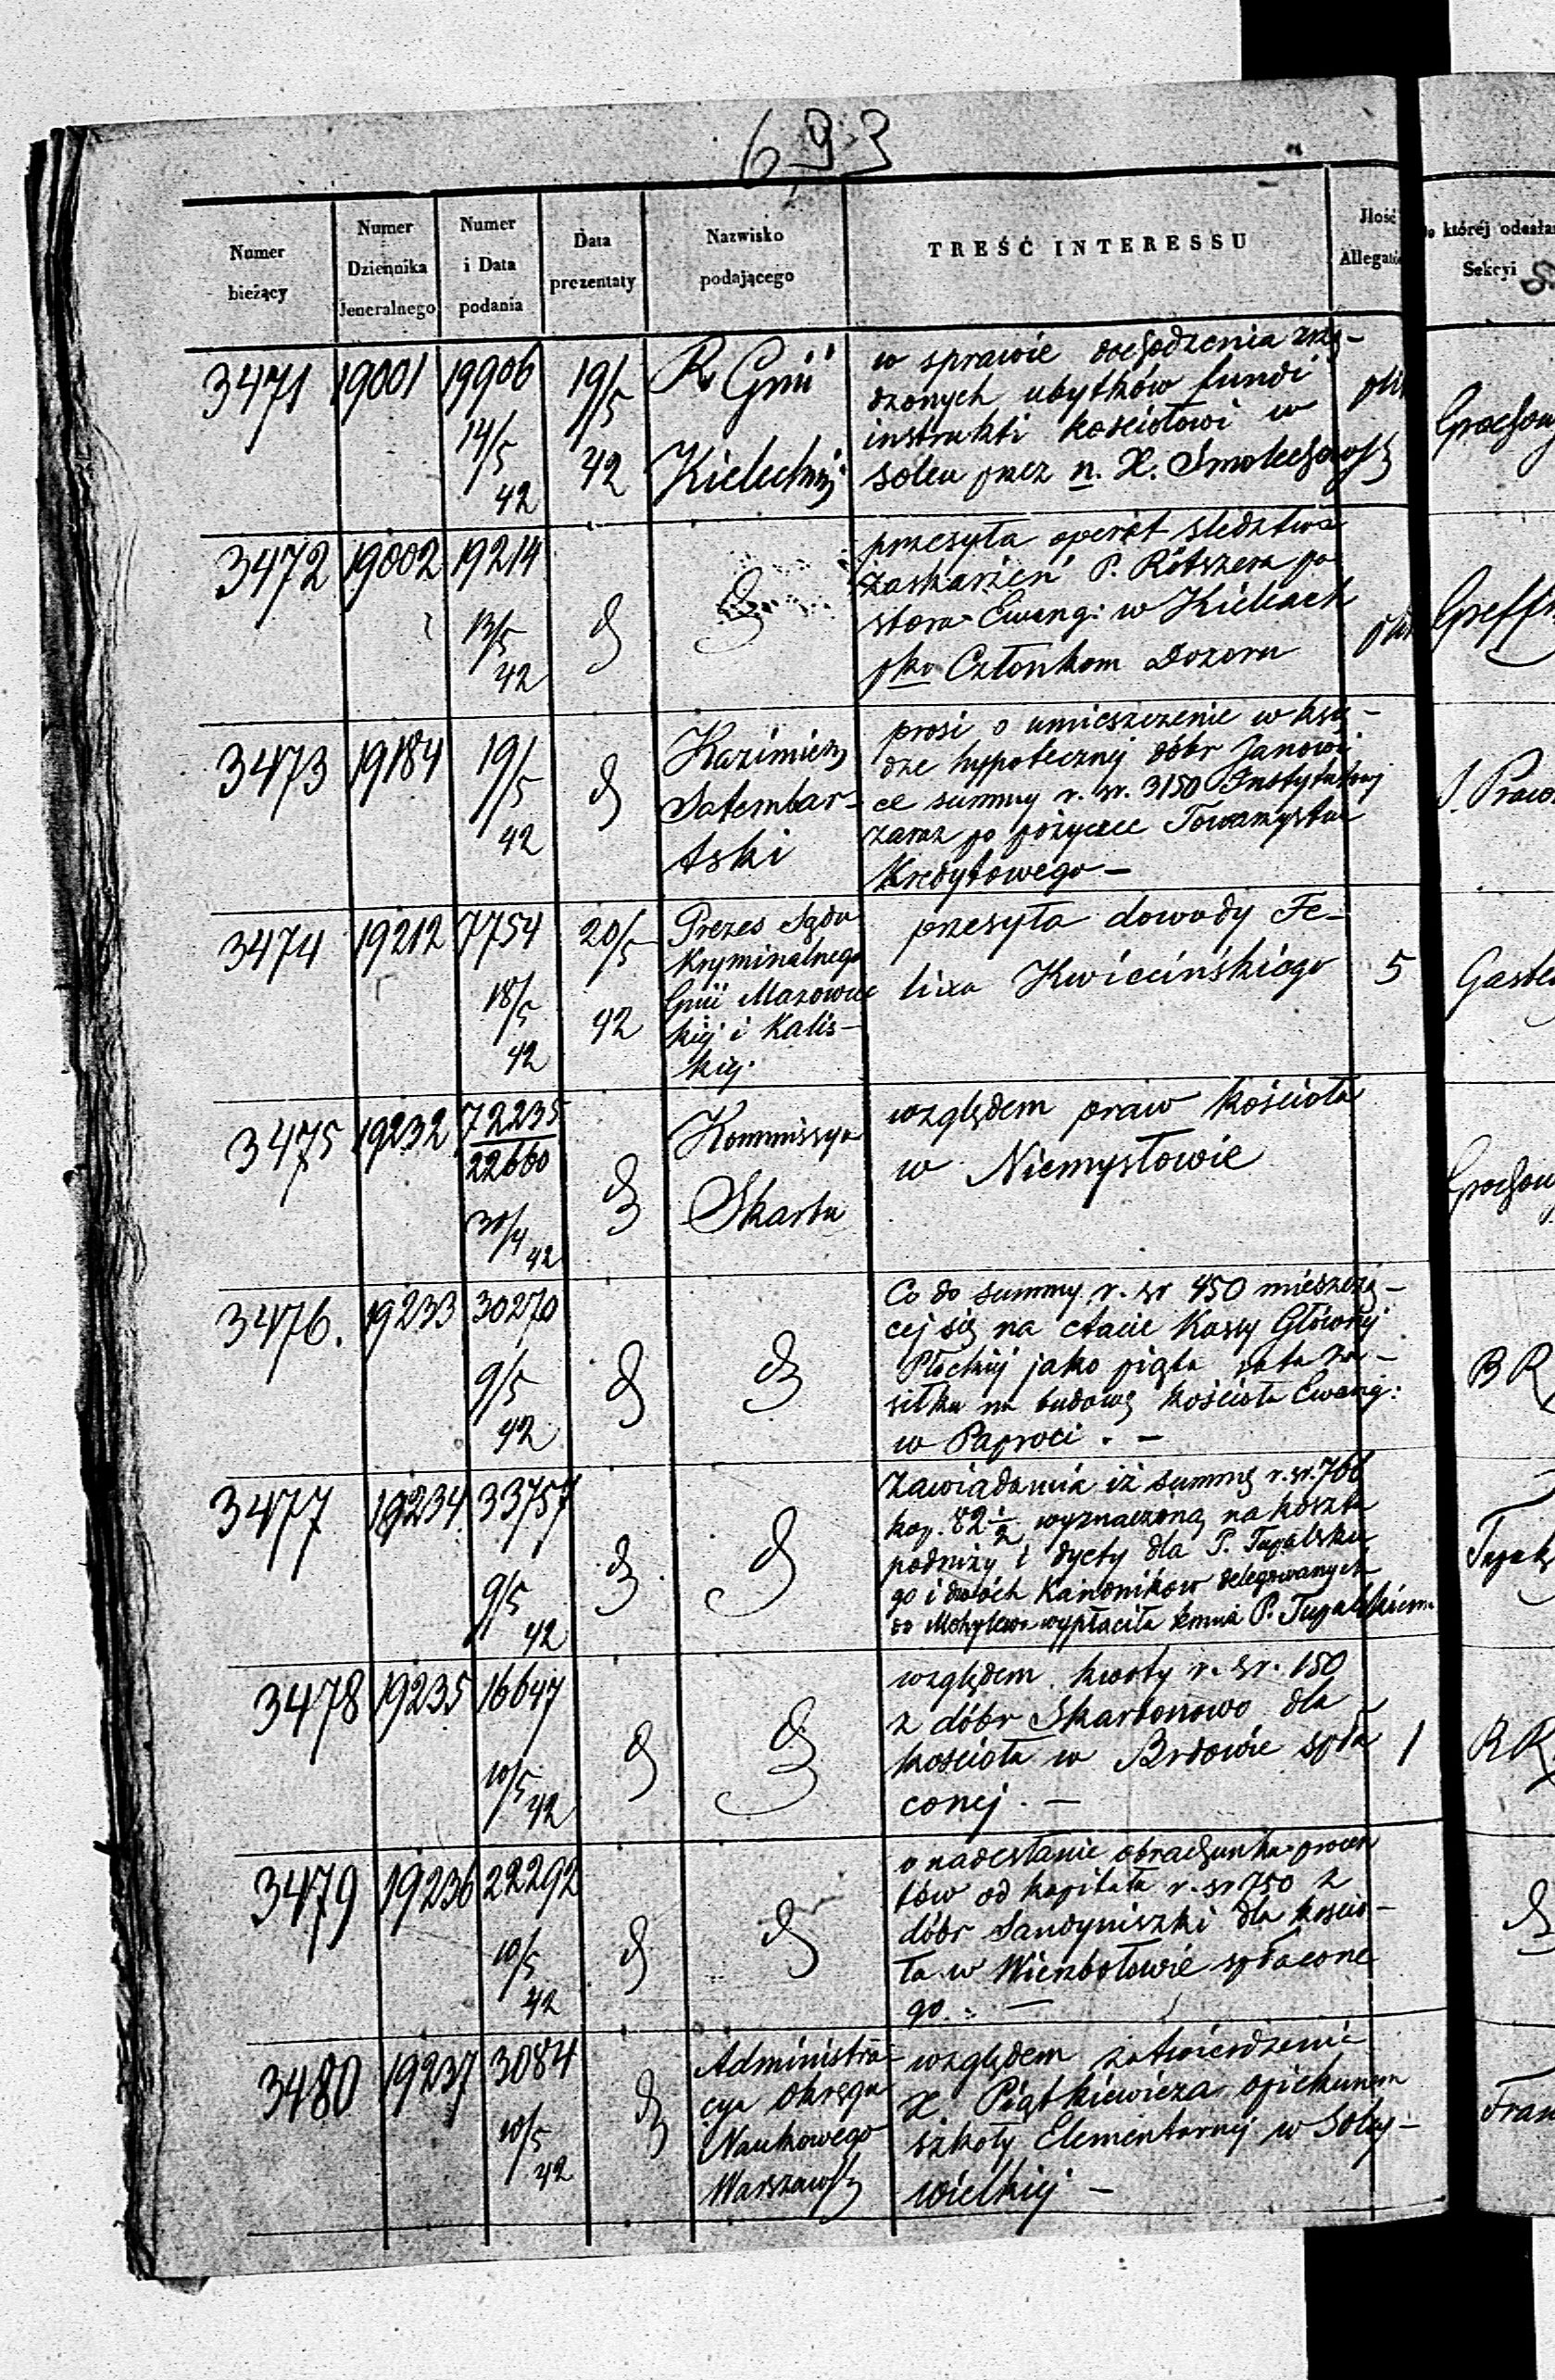 693
Numer bieżący
Numer Dziennika Jeneralnego
Numer i Data podania
Data prezentaty
Nazwisko podającego
TREŚĆ INTERESSU
Jlość
której odesłan
Sekcyi
3471 19001 19906 14/5 42 19/5 42
R. Gnii
Kielechiej
w sprawie dochodzenia zrzą-
dzonych ubytków fundi
instrukti kościołowi w
Solcu przez n. X.
3472 19002 19214 13/5 42 d
d
przesyła operat sledztwa
zaskarżeń P. Rötszera pa
stora Ewang: w Kielcach
pko Członkom Dozoru
3473 19184 19/5 42 d
Kazimierz
prosi o umieszczenie w księ-
dze hypotecznej dóbr Janowi
ce summy r. sr. 3150 Instytutowej
zaraz po pożyczce Towarzystwa
Kredytowego —
3474 19212 7754 18/5 42 20/5 42
Prezes Sądu
Kryminalnego
Gnii Mazowiec
kiej i Kalis-
kiej.
przesyła dowody Fe-
lixa Kwiecińskiego
5
3475 19232 72235/22660 30/4 42 d
Kommissya
Skarbu
względem praw kościoła
w Niemysłowie
3476. 19233 30270 9/5 42 d
d
Co do summy r. sr 450 mieszczą-
cej się na etacie Kassy Głównej
Płockiej jako piąta rata za-
siłku na budowę kościoła Ewang:
w Paproci. —
B R
3477 19234 33757 9/5 42 d
d
Zawiadamia iż summę r. sr. 766
kop. 82 1/2 wyznaczoną na koszta
podróży i dyety dla P. Tupalskie
go i dwóch Kanoników delegowanych
do Mohylewa wypłaciła temuż P. Tupalskiemu
3478 19235 16647 10/5 42 d
d
względem kwoty r. sr. 150
z dóbr Skarbonowo dla
kościoła w Brdowie spła
conej. —
1
R R
3479 19236 22292 10/5 42 d
d
o nadesłanie obrachunku procen
tów od kapitału r. sr 750 z
dóbr Sandyniszki dla kościo-
ła w Wierzbołowie spłacone
go. —
d
3480 19237 3084 10/5 42 d
Administra-
cya Okręgu
Naukowego
Warszaws
względem zatwierdzenia
X. Piątkiewicza opiekunem
szkoły Elementarnej w
wielkiej —